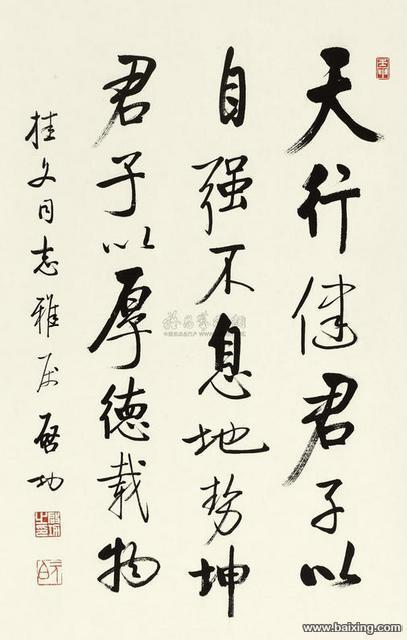 天行健君子以
自强不息地势坤
君子以厚德载物
桂文同志雅属 启功
www.baixing.com